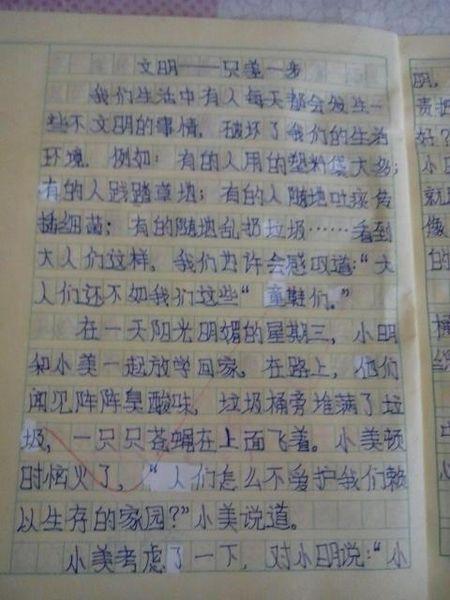 文明——只差一步
我们生活中有人每天都会发生一
些不文明的事情，破坏了我们的生活
环境。例如：有的人用的塑料袋太多；
有的人践踏草地；有的人随地吐痰传
播细菌；有的随地乱扔垃圾……看到
大人们这样，我们也许会感叹道：“大
人们还不如我们这些“童鞋们。”
在一天阳光明媚的星期三，小明
和小美一起放学回家。在路上，他们
闻见阵阵臭酸味，垃圾桶旁堆满了垃
圾，一只只苍蝇在上面飞着。小美顿
时恼火了，“人们怎么不爱护我们赖
以生存的家园？”小美说道。
小美考虑了一下，对小明说：“小
明，
责把
好？
小日
就
像
的